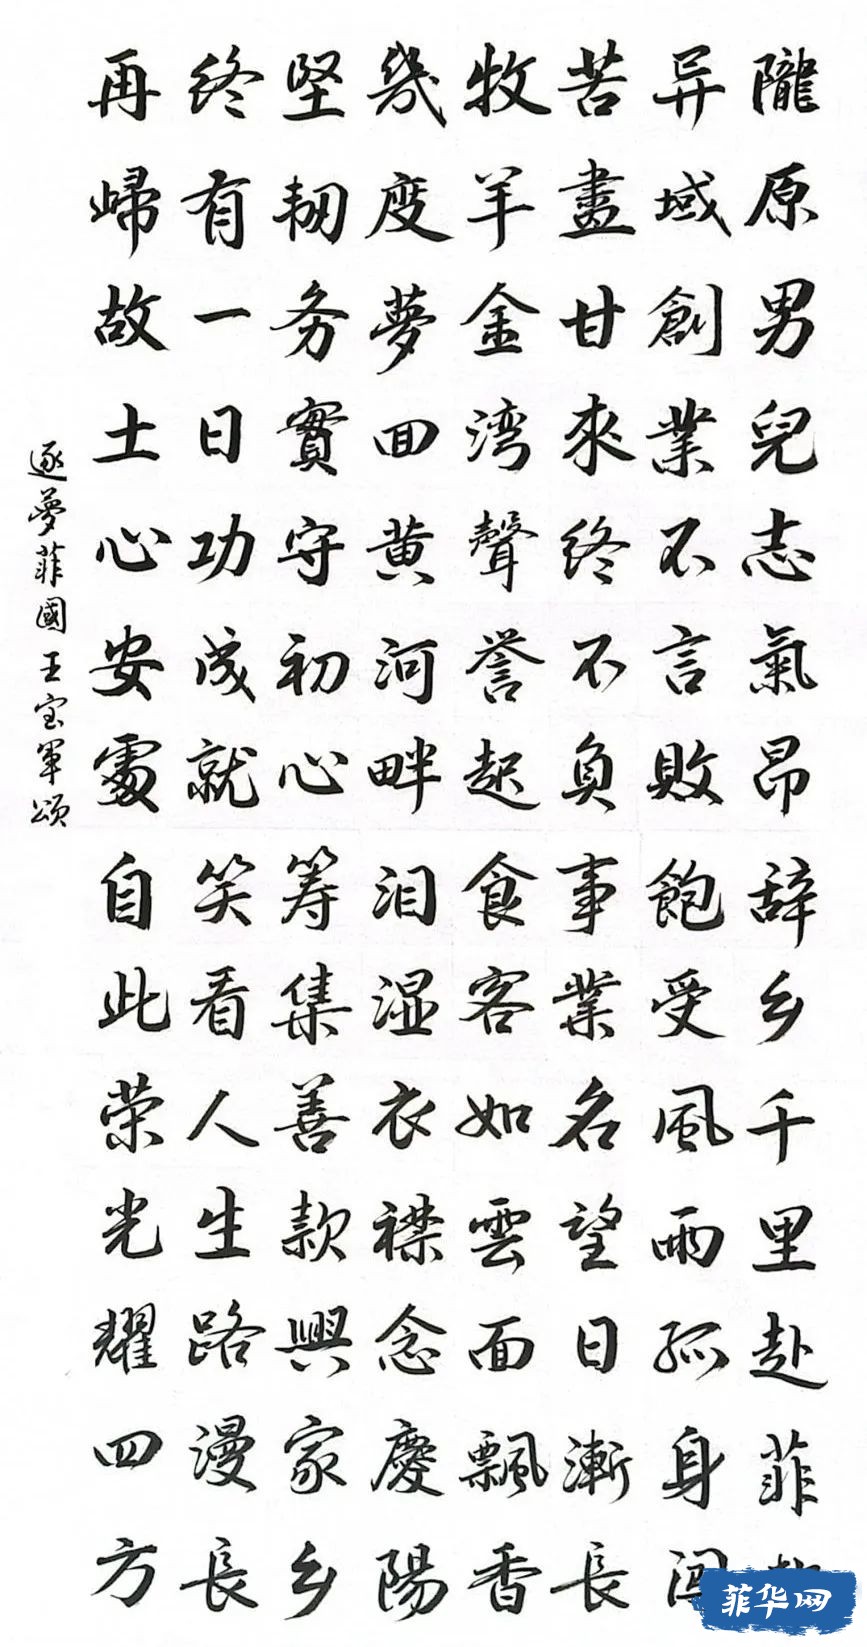 隴原男兒志氣昂辞乡千里赴菲
异域創業不言敗飽受風雨孤身闯
苦盡甘來终不負事業名望日漸長
牧羊金湾聲誉起食客如雲面飄香
幾度夢回黄河畔泪湿衣襟念慶陽
堅韧务實守初心筹集善款興家乡
终有一日功成就笑看人生路漫長
再歸故土心安處自此荣光耀四方
逐夢菲國王宝軍頌
菲华网